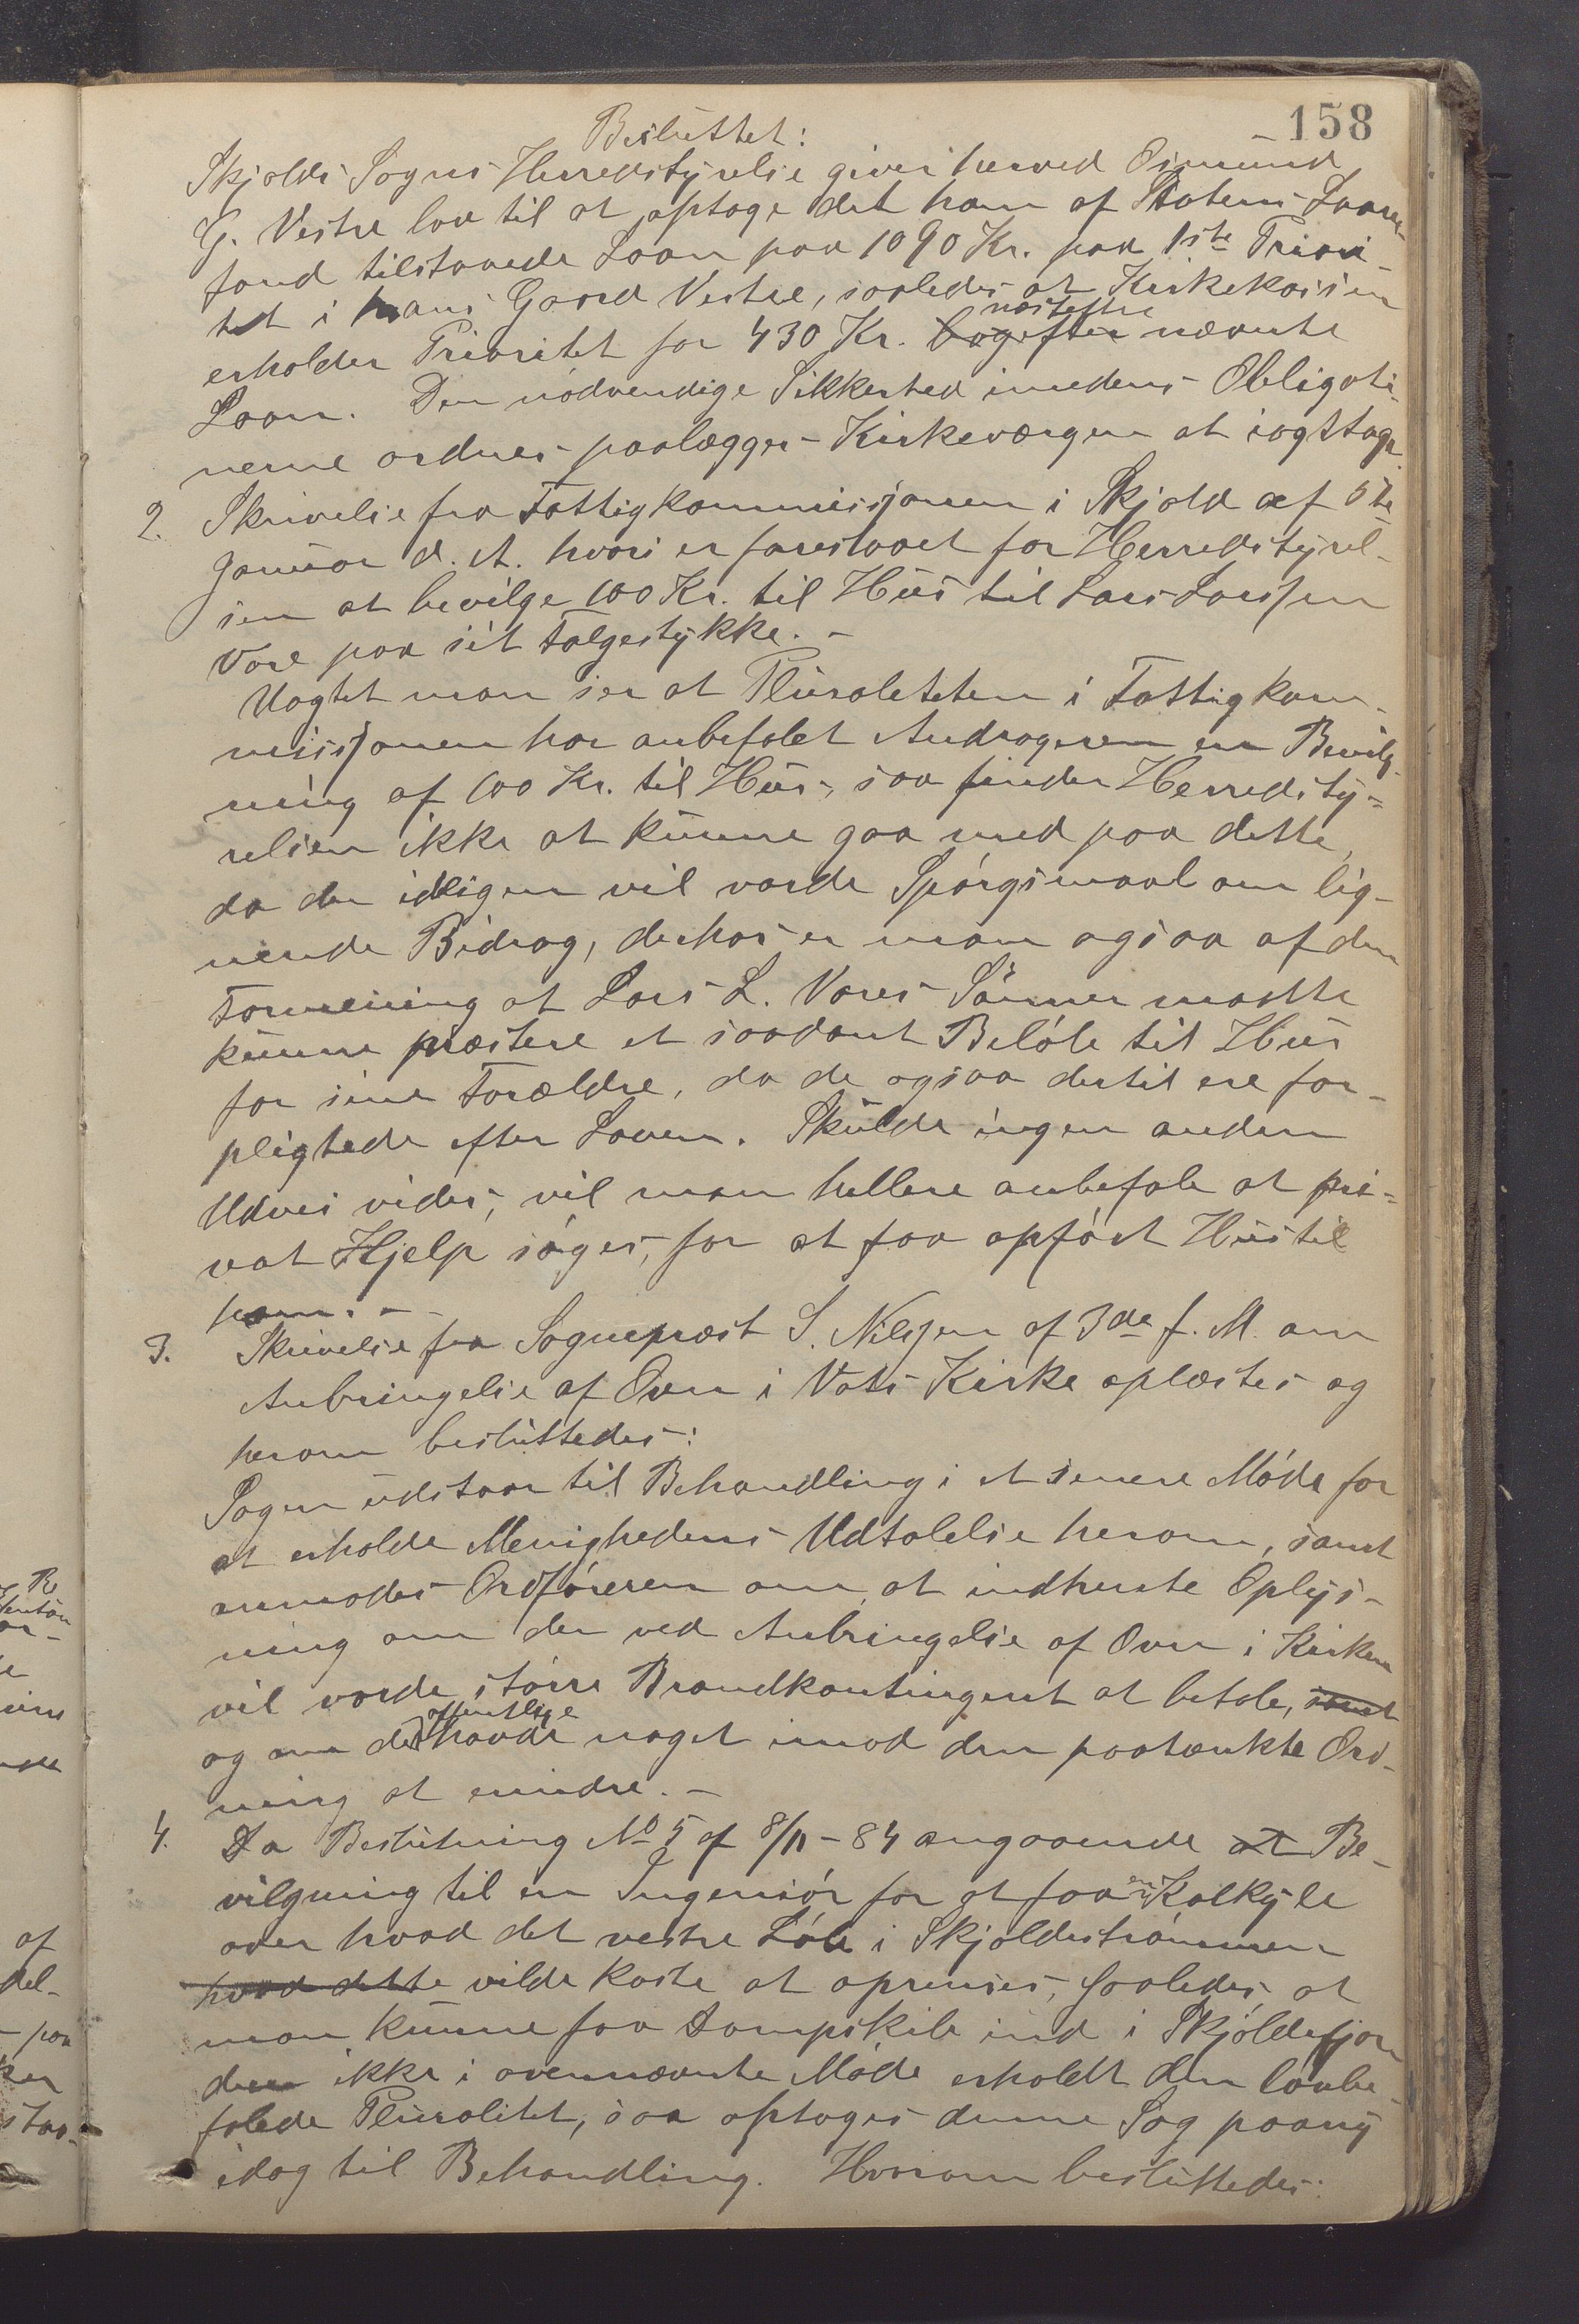 158
Besluttet:
Skjolds Sogns Herredstyrelse giver herved Osmund
G. Vestre lov til at optage det ham af Statens Laane-
fond tilstaaede Laan paa 1090 Kr. paa 1ste Priori-
tet i hans Gaard Vestre, saaledes at Kirkekassen
erholder Prioritet for 430 Kr. bagefter næstefter nævnte
Laan. Den nödvendige Sikkerhed imedens Obligati-
nerne ordnes paalægges Kirkeværgen at iagttage.
2. Skrivelse fra Fattigkommissjonen i Skjold af 5te
Januar d. A. hvori er foreslaaet for Herredstyrel-
sen at bevilge 100 Kr. til Hus til Lars Larssen
Vore paa sit Folgestykke. -
Uagtet man ser at Pluraliteten i Fattigkom-
missjonen har anbefalet Andrageren en Bevilg-
ning af 100 Kr. til Hus, saa finder Herredsty-
relsen ikke at kunne gaa med paa dette,
da der ideligen vil vorde Spörgsmaal om lig-
nende Bidrag, derhos er man ogsaa af den
Formening at Lars L. Vores Sönner maatte
kunne præstere et saadant Belöb til Hus
for sine Forældre, da de ogsaa dertil ere for-
pligtede efter Loven. Skulde ingen anden
Udvei vides, vil man hellere anbefale at pri-
vat Hjelp söges, for at faa opfört Hus til
ham. -
3. Skrivelse fra Sogneprest S. Nilssen af 3de f. M. om
Anbringelse af Ovn i Vats Kirke oplæstes og
herom besluttedes:
Sagen udstaar til Behandling i et senere Möde for
at erholde Menighedens Udtalelse herom, samt
anmodes Ordföreren om at indhente Oplys-
ning om der ved Anbringelse af Ovn i Kirken
vil vorde större Brandkontingent at betale, samt
og om det offentlige havde noget imod den paatænkte Ord-
ning at erindre. -
4. Da Beslutning No 5 af 8/11 - 84 angaaende at Be-
vilgning til en Ingeniör for at faa en Kalkyle
over hvad det vestre Löb i Skjoldeströmmen
hvad dette vilde koste at oprenses, saaledes at
man kunne faa Dampskib ind i Skjoldefjor-
den ikke i ovennævnte Möde erholdt den lovbe-
falede Pluralitet, saa optages denne Sag paany
idag til Behandling. Hvorom besluttedes: